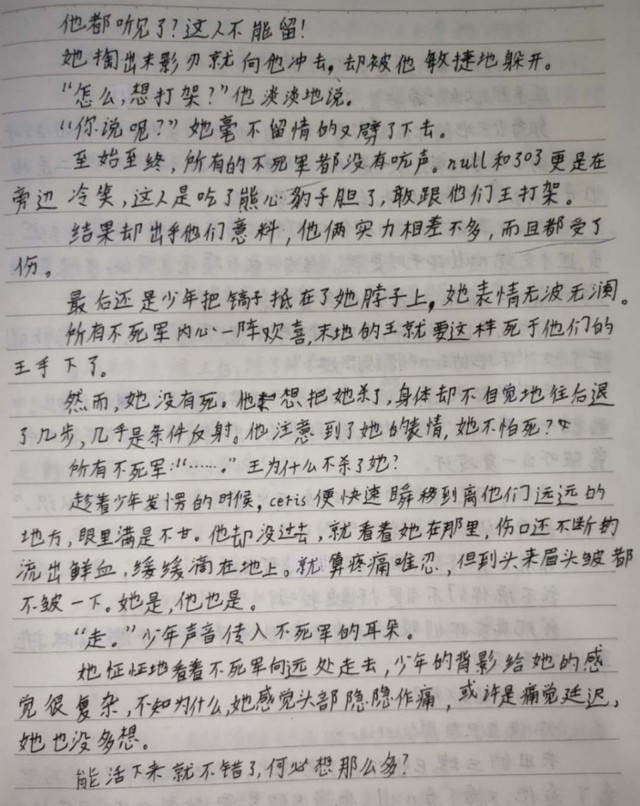 他都听见了？这人不能留！
她掏出末影刃就向他冲去，却被他敏捷地躲开。
“怎么，想打架？”他淡淡地说。
“你说呢？”她毫不留情的又劈了下去。
至始至终，所有的不死军都没有吭声。null和303更是在
旁边冷笑，这人是吃了熊心豹子胆了，敢跟他们王打架。
结果却出乎他们意料，他俩实力相差不多，而且都受了
伤。
最后还是少年把镐子抵在了她脖子上，她表情无波无澜。
所有不死军内心一阵欢喜，末地的王就要这样死于他们的
王手下了。
然而，她没有死。他想把她杀了，身体却不自觉地往后退
了几步，几乎是条件反射。他注意到了她的表情，她不怕死？
所有不死军：“……。”王为什么不杀了她？
趁着少年发愣的时候，cetis便快速瞬移到离他们远远的
地方，眼里满是不甘。他却没过去，就看着她在那里，伤口还不断的
流出鲜血，缓缓滴在地上。就算疼痛难忍，但到头来眉头皱都
不皱一下。她是，他也是。
“走。”少年声音传入不死军的耳朵。
她怔怔地看着不死军向远处走去，少年的背影给她的感
觉很复杂，不知为什么，她感觉头部隐隐作痛，或许是痛觉延迟，
她也没多想。
能活下来就不错了，何必想那么多？